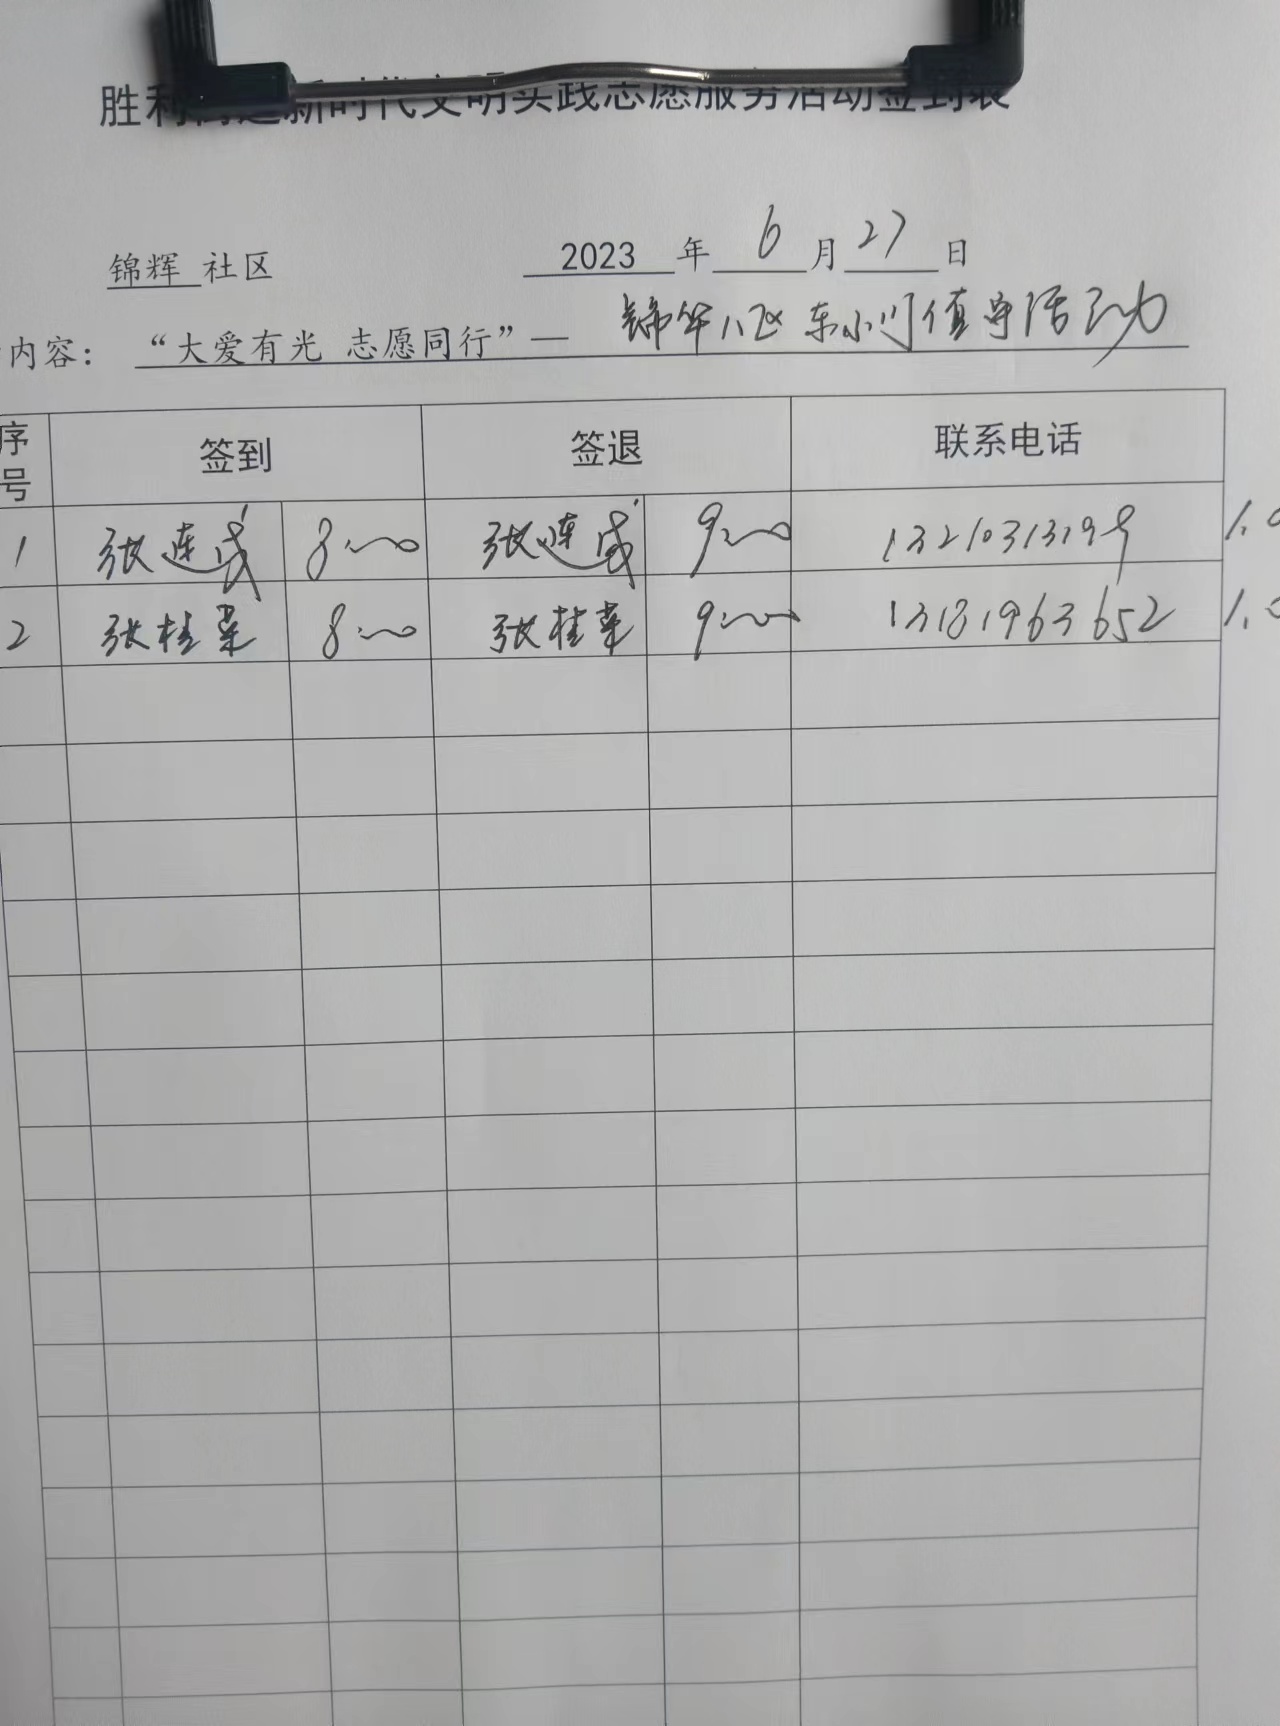 胜利街道新时代文明实践志愿服务活动签到表
锦辉 社区 2023 年 6 月 27 日
内容： “大爱有光 志愿同行”— 锦华八区东小门值守活动
序号 签到 签退 联系电话
1 张连成 8:00 张连成 9:00 13210313199 1.0
2 张桂荣 8:00 张桂荣 9:00 13181963652 1.0